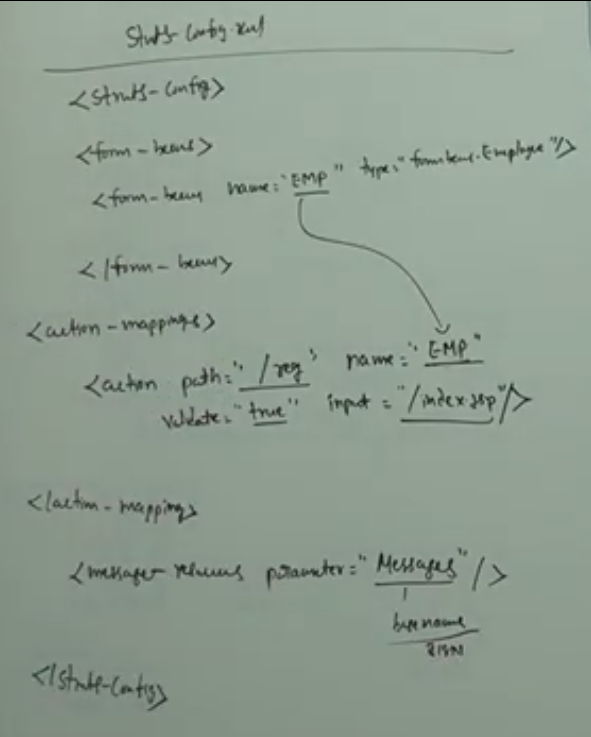 Struts-Config.xml
<struts-config>
<form-beans>
<form-bean name="EMP" type="formbeans.Employee"/>
</form-beans>
<action-mappings>
<action path="/reg" name="EMP"
validate="true" input="/index.jsp"/>
</action-mappings>
<message-resources parameter="Messages"/>
basename
I18N
</struts-config>